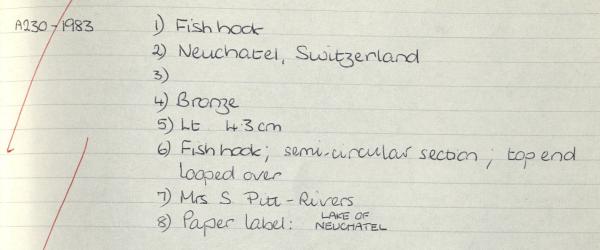 A230-1983 1) Fish hook
2) Neuchatel, Switzerland
3)
4) Bronze
5) Lt 4.3cm
6) Fish hook; semi-circular section; top end
looped over
7) Mrs S Pitt-Rivers
8) Paper label: LAKE OF
NEUCHATEL